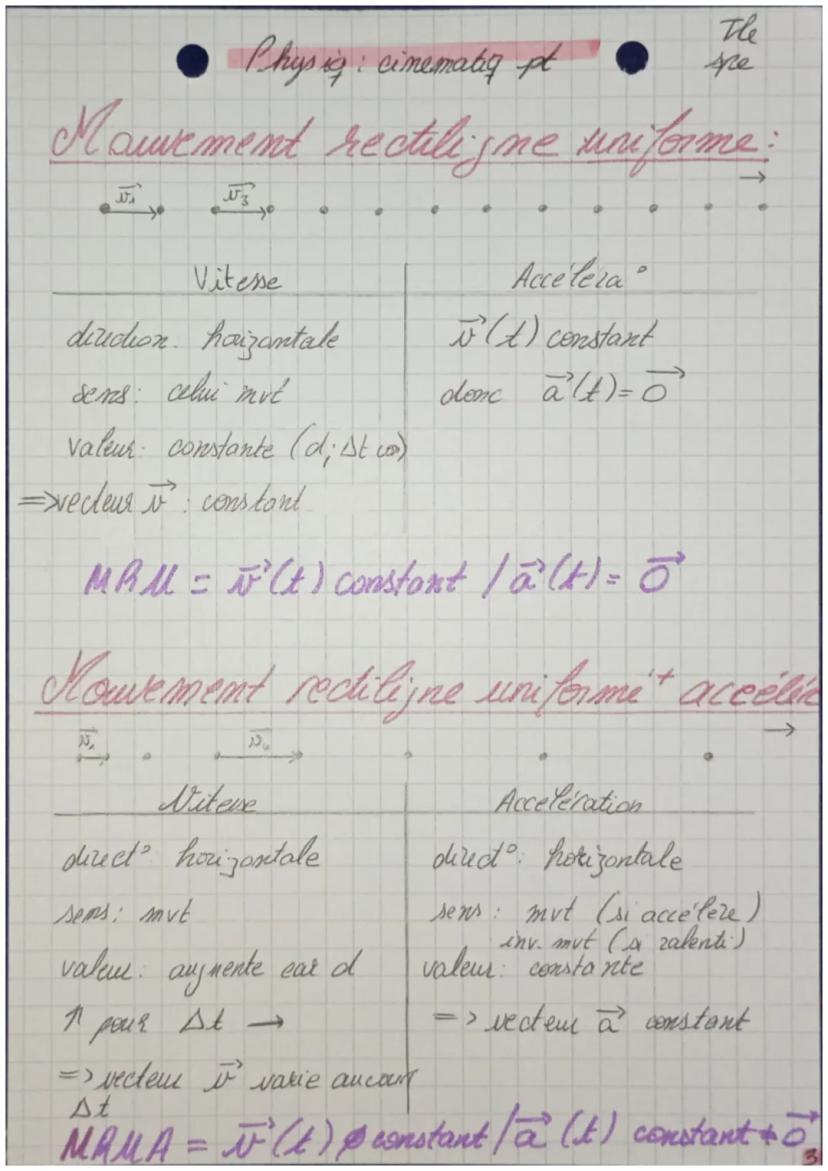 Tle
Physiq : cinematiq pt spe
Mouvement rectiligne uniforme :
v₁ v₃
Vitesse Accéléra°
direction. horizontale v(t) constant
sens : celui mvt donc a(t) = 0
valeur : constante (d ; Δt
=> vecteur v : constant
MRU = v(t) constant / a(t) = 0
Mouvement rectiligne uniformé+ accélér
v₁ v₄
Vitesse Accélération
direct° horizontale direct° : horizontale
sens : mvt sens : mvt (si accélère)
inv. mvt (si ralenti)
valeur : augmente car d valeur : constante
↑ pour Δt → => vecteur a constant
=> vecteur v varie au cours
Δt
MRUA = v(t) constant / a(t) constant ≠ 0
3